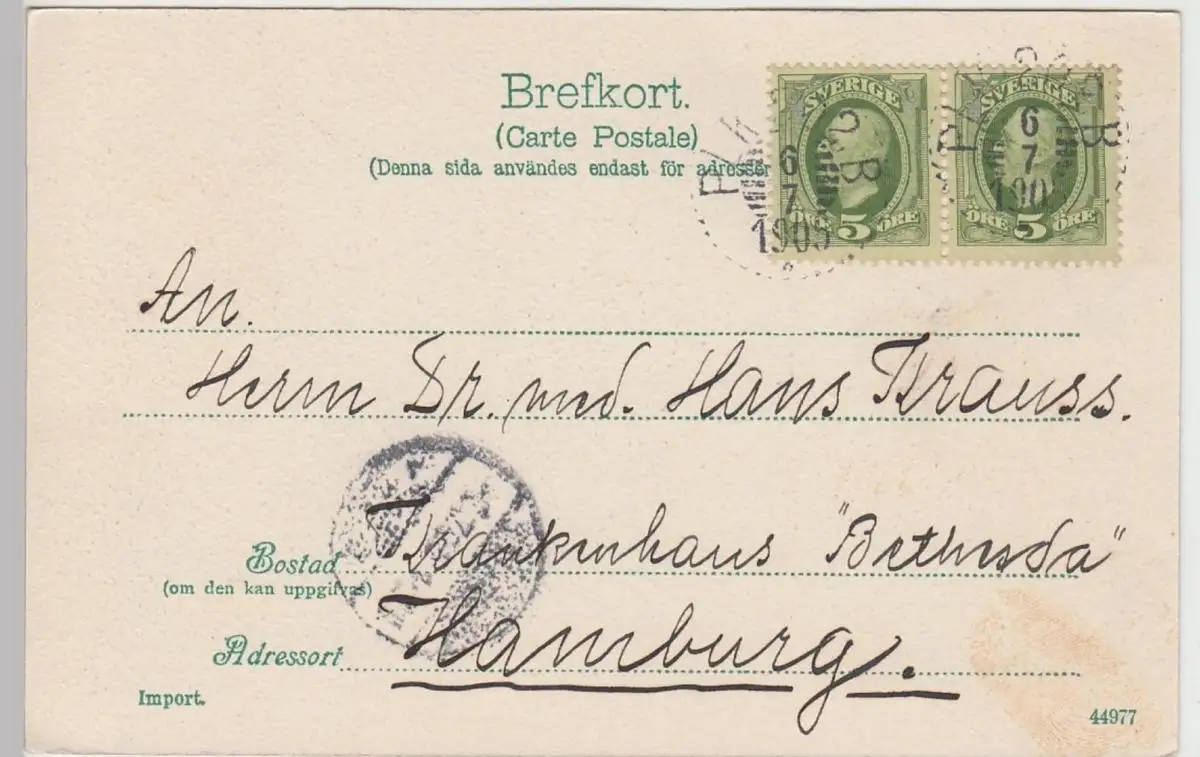 Brefkort.
(Carte Postale)
(Denna sida användes endast för adressen
SVERIGE SVERIGE
ÖRE 5 ÖRE ÖRE 5 ÖRE
PKXP 2 B
6 6
7 7
1905 190
An.
Herrn Dr. med. Hans Krauss.
Krankenhaus "Bethesda"
Bostad
(om den kan uppgifvas)
Hamburg.
Adressort
Import.
44977